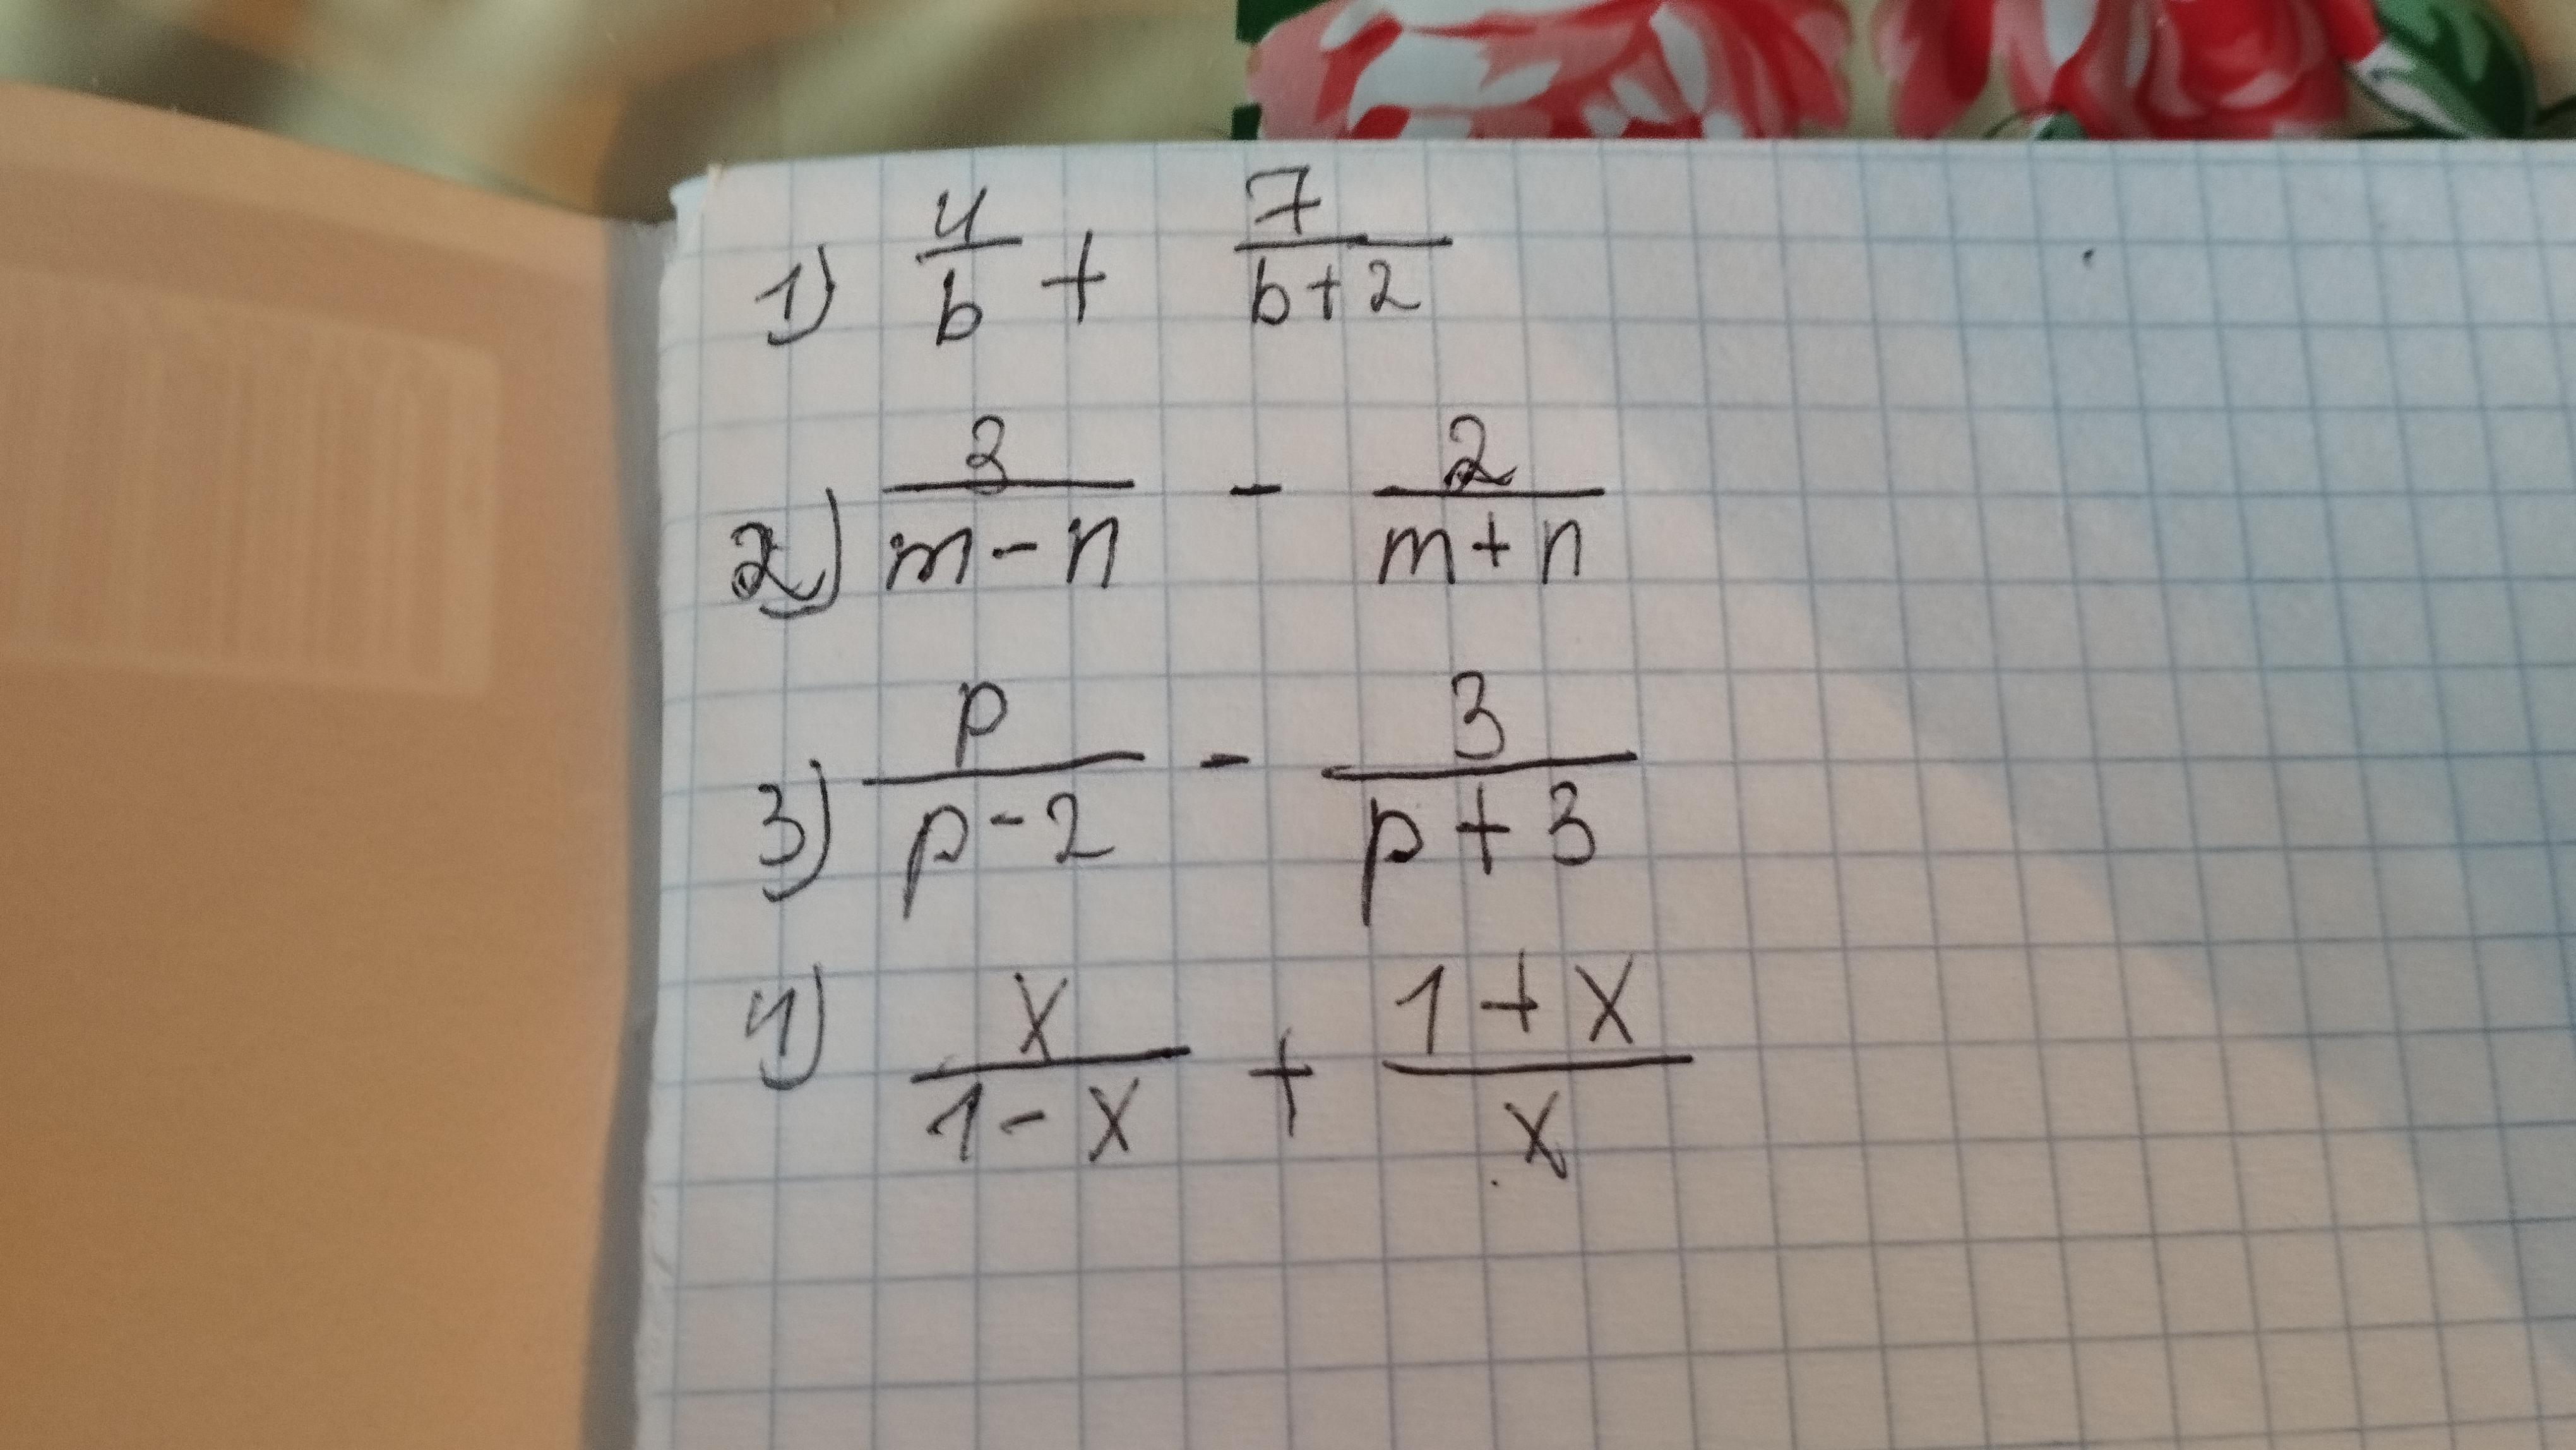 1) 4/b + 7/(b+2)
2) 3/(m-n) - 2/(m+n)
3) p/(p-2) - 3/(p+3)
4) x/(1-x) + (1+x)/x